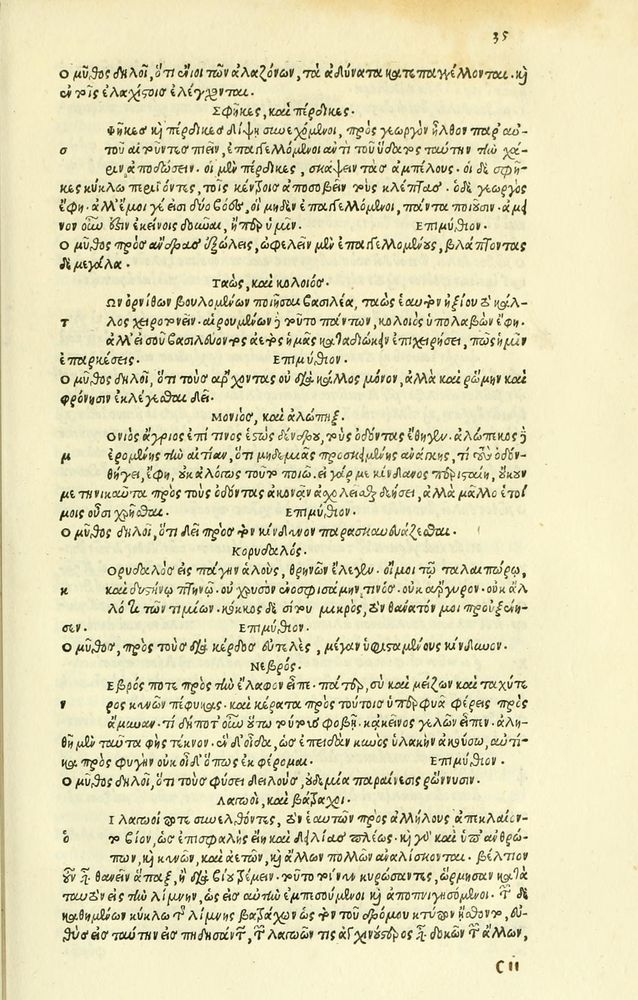 35
Ο μῦθος δηλοῖ, ὅτι ἔνιοι τῶν ἀλαζόνων, τὰ ἀδύνατα κατεπαγγέλλονται. καὶ
ἐν τοῖς ἐλαχίστοις ἐλέγχονται.
Σφῆκες, καὶ πέρδικες.
Φῆκες καὶ πέρδικες δίψῃ συνεχόμενοι, πρὸς γεωργὸν ἦλθον παρ' αὐ-
σ τοῦ αἰτοῦντες πιεῖν, ἐπαγγελλόμενοι ἀντὶ τοῦ ὕδατος ταύτην τὴν χά-
ριν ἀποδώσειν. οἱ μὲν πέρδικες, σκάψειν τὰς ἀμπέλους. οἱ δὲ σφῆ-
κες κύκλῳ περιϊόντες, τοῖς κέντροις ἀποσοβεῖν τοὺς κλέπτας. ὁ δὲ γεωργὸς
ἔφη. ἀλλ' ἔμοιγέ εἰσι δύο βόες, οἳ μηδὲν ἐπαγγελλόμενοι, πάντα ποιοῦσιν. ἄμει
νον οὖν ἐστὶν ἐκείνοις δοῦναι, ἤπερ ὑμῖν. Επιμύθιον.
Ο μῦθος πρὸς ἄνδρας ἐξώλεις, ὠφελεῖν μὲν ἐπαγγελλομένους, βλάπτοντας
δὲ μεγάλα.
Ταὼς, καὶ κολοιός.
Ων ὀρνίθων βουλομένων ποιῆσαι βασιλέα, ταὼς ἑαυτὸν ἠξίου διὰ κάλ-
τ λος χειροτονεῖν. αἱρουμένων δὲ τοῦτο πάντων, κολοιὸς ὑπολαβὼν ἔφη.
ἀλλ' εἰ σοῦ βασιλεύοντος ἀετὸς ἡμᾶς καταδιώκειν ἐπιχειρήσει, πῶς ἡμῖν
ἐπαρκέσεις. Επιμύθιον.
Ο μῦθος δηλοῖ, ὅτι τοὺς ἄρχοντας οὐ διὰ κάλλος μόνον, ἀλλὰ καὶ ῥώμην καὶ
φρόνησιν ἐκλέγεσθαι δεῖ.
Μονιὸς, καὶ ἀλώπηξ.
Ονιὸς ἄγριος ἐπί τινος ἑστὼς δένδρου, τοὺς ὀδόντας ἔθηγεν. ἀλώπεκος δὲ
μ ἐρομένης τὴν αἰτίαν, ὅτι μηδεμιᾶς προσκειμένης ἀνάγκης, τί τοὺς ὀδόν-
θήγει, ἔφη, οὐκ ἀλόγως τοῦτο ποιῶ. εἰ γάρ με κίνδυνος περισταίη, οὐκουν
με τηνικαῦτα πρὸς τοὺς ὀδόντας ἀκονᾶν ἀσχολεῖσθαι δεήσει, ἀλλὰ μᾶλλον ἑτοί
μοις οὖσι χρῆσθαι. Επιμύθιον.
Ο μῦθος δηλοῖ, ὅτι δεῖ πρὸς τὸν κίνδυνον παρασκευάζεσθαι.
Κορυδαλός.
Ορυδαλὸς εἰς πάγην ἁλοὺς, θρηνῶν ἔλεγεν. οἴμοι τῷ ταλαιπώρῳ,
κ καὶ δυστήνῳ πτηνῷ. οὐ χρυσὸν ἐνοσφισάμην τινός. οὐκ ἄργυρον. οὐκ ἄλ
λό τι τῶν τιμίων. κόκκος δὲ σίτου μικρὸς, τὸν θάνατόν μοι προὐξένη-
σεν. Επιμύθιον.
Ο μῦθος, πρὸς τοὺς διὰ κέρδος εὐτελὲς, μέγαν ὑφισταμένους κίνδυνον.
Νεβρός.
Εβρός ποτε πρὸς τὴν ἔλαφον εἶπε. πάτερ, σὺ καὶ μείζων καὶ ταχύτε
ν ρος κυνῶν πέφυκας. καὶ κέρατα πρὸς τούτοις ὑπερφυᾶ φέρεις πρὸς
ἄμυναν. τί δήποτ' οὖν οὕτω τούτους φοβῇ. κἀκεῖνος γελῶν εἶπεν. ἀλη-
θῆ μὲν ταῦτα φῂς τέκνον. ἓν δ' οἶδα, ὡς ἐπειδὰν κυνὸς ὑλακὴν ἀκούσω, αὐτί-
κα πρὸς φυγὴν οὐκ οἶδ' ὅπως ἐκφέρομαι. Επιμύθιον.
Ο μῦθος δηλοῖ, ὅτι τοὺς φύσει δειλοὺς, οὐδεμία παραίνεσις ῥώννυσιν.
Λαγωοὶ, καὶ βάτραχοι.
Ι λαγωοί ποτε συνελθόντες, τὸν ἑαυτῶν πρὸς ἀλλήλους ἀπεκλαίον-
ὁ το βίον, ὡς ἐπισφαλὴς εἴη καὶ δειλίας πλέως. καὶ γὰρ καὶ ὑπὸ ἀνθρώ-
πων, καὶ κυνῶν, καὶ ἀετῶν, καὶ ἄλλων πολλῶν ἀναλίσκονται. βέλτιον
οὖν εἶναι θανεῖν ἅπαξ, ἢ διὰ βίου τρέμειν. τοῦτο τοίνυν κυρώσαντες, ὥρμησαν κατὰ
ταυτὸν εἰς τὴν λίμνην, ὡς εἰς αὐτὴν ἐμπεσούμενοι καὶ ἀποπνιγησόμενοι. τῶν δὲ
καθημένων κύκλῳ τῆς λίμνης βατράχων ὡς τὸν τοῦ δρόμου κτύπον ᾔσθοντο, εὐ-
θὺς εἰς ταύτην εἰσπηδησάντων, τῶν λαγωῶν τις ἀγχινούστερος εἶναι δοκῶν τῶν ἄλλων,
C ii